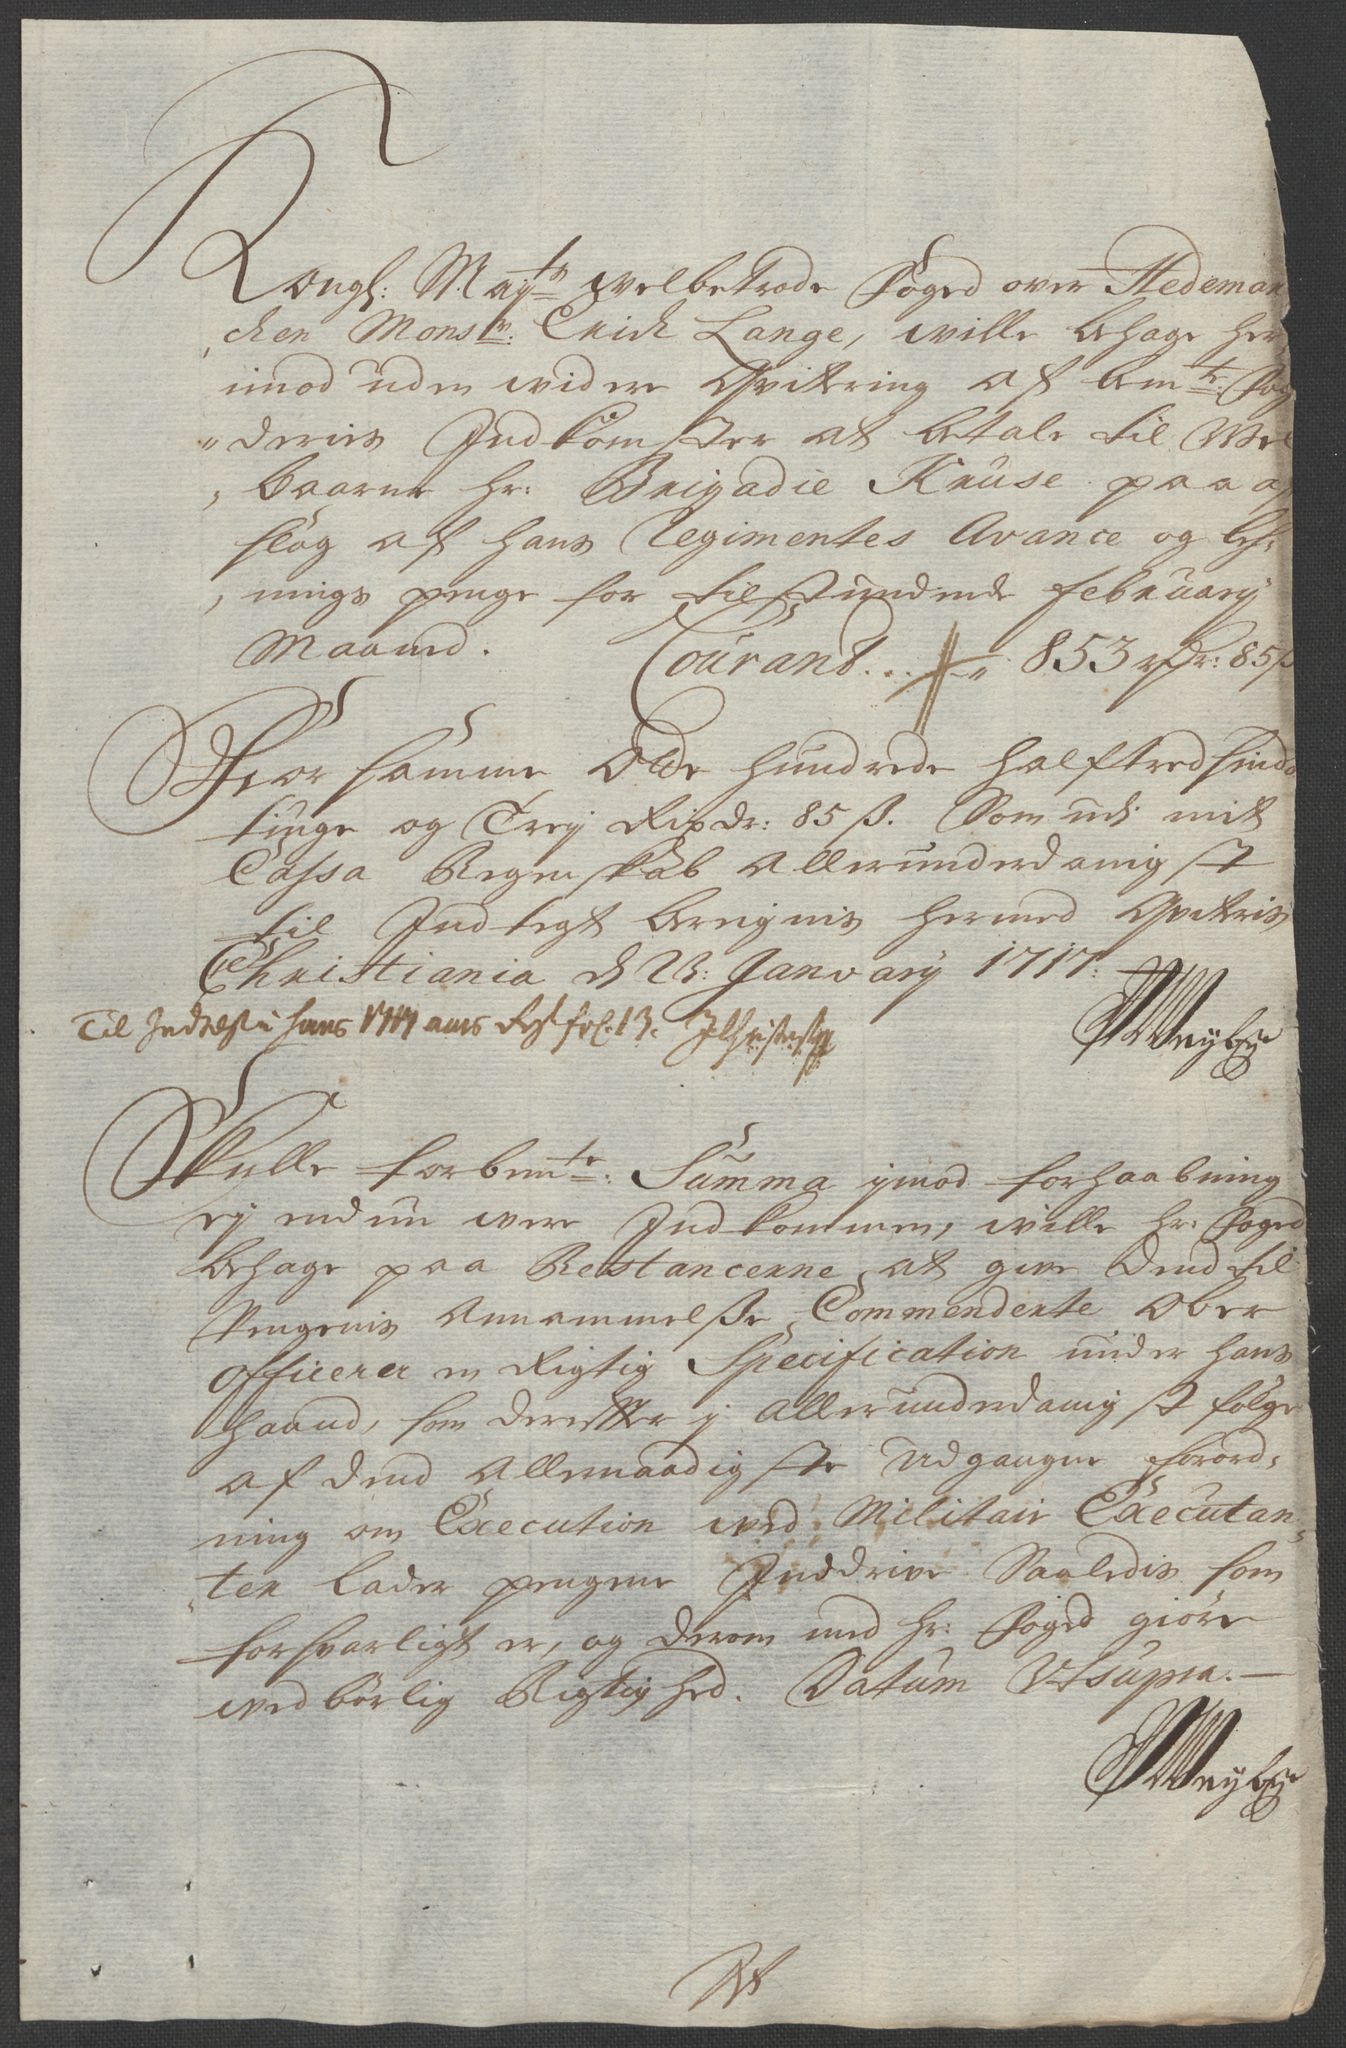 Kongl: Mayts welbetrode Foged over Hedemar
chen Monsr: Erich Lange, wille behage her
imod uden widere Qvitering af bemte: Fog
deries Indkomster at betale til Wel
baarne hr: Brigadie Kruse paa af
slag af hans Regimentes Avance og
nings penge for tilstundende February
Maaned. Courant ... 853 rdr: 85 ß
Hvor samme Otte hundrede halftredsinds
tiuge og Trey Rixdr: 85 ß. Som udi mit
Cassa Regenskab Allerunderdanigst
til Indtegt beregnis hermed Qviteris
Christiania d 23: January 1717:
Til Indtegt i hans 1717 aars fol: 13.
Weybye
Skulle forbemte: Summa imod forhaabning
ey endnu were Indkommen, wille hr: Foged
behage paa Restancerne at give dend til
Pengenis Annammelße Commenderte Ober
officerer en Rigtig Specification under hans
haand, som derefter i Allerunderdanigst følge
af dend Allernaadigste Udgangne forord,
ning om Execution wed Militair Executan
ter lader pengene Inddrive Saaledis som
forsvarligt er, og derom med hr: Foged giøre
wedbørlig Rigtighed. Datum Utsupra.
Weybye